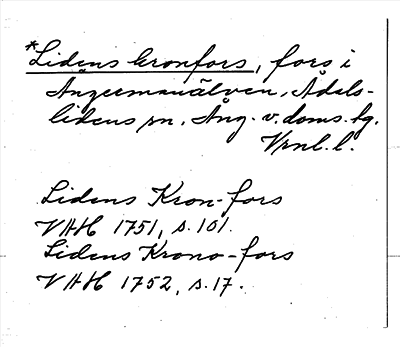 *Lidens kronfors, fors i
Ångermanälven, Ådals-
lidens sn. Ång. v. doms. hg.
Vrnl. l.
Lidens Kron-fors
VAH 1751, s. 101.
Lidens Krono-fors
VAH 1752, s. 17.